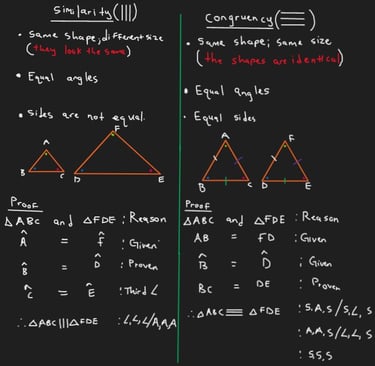 Similarity (|||)
• Same shape; different size
(they look the same)
• Equal angles
• Sides are not equal.
A
B
C
F
D
E
Proof
△ABC and △FDE : Reason
Â = F̂ : Given
B̂ = D̂ : Proven
Ĉ = Ê : Third ∠
∴ △ABC ||| △FDE : ∠,∠,∠/A,A,A
Congruency (≡)
• Same shape; same size
(the shapes are identical)
• Equal angles
• Equal sides
A
B
C
F
D
E
Proof
△ABC and △FDE : Reason
AB = FD : Given
B̂ = D̂ : Given
BC = DE : Proven
∴ △ABC ≡ △FDE : S,A,S / S,∠,S
: A,A,S/∠,∠,S
: S,S,S